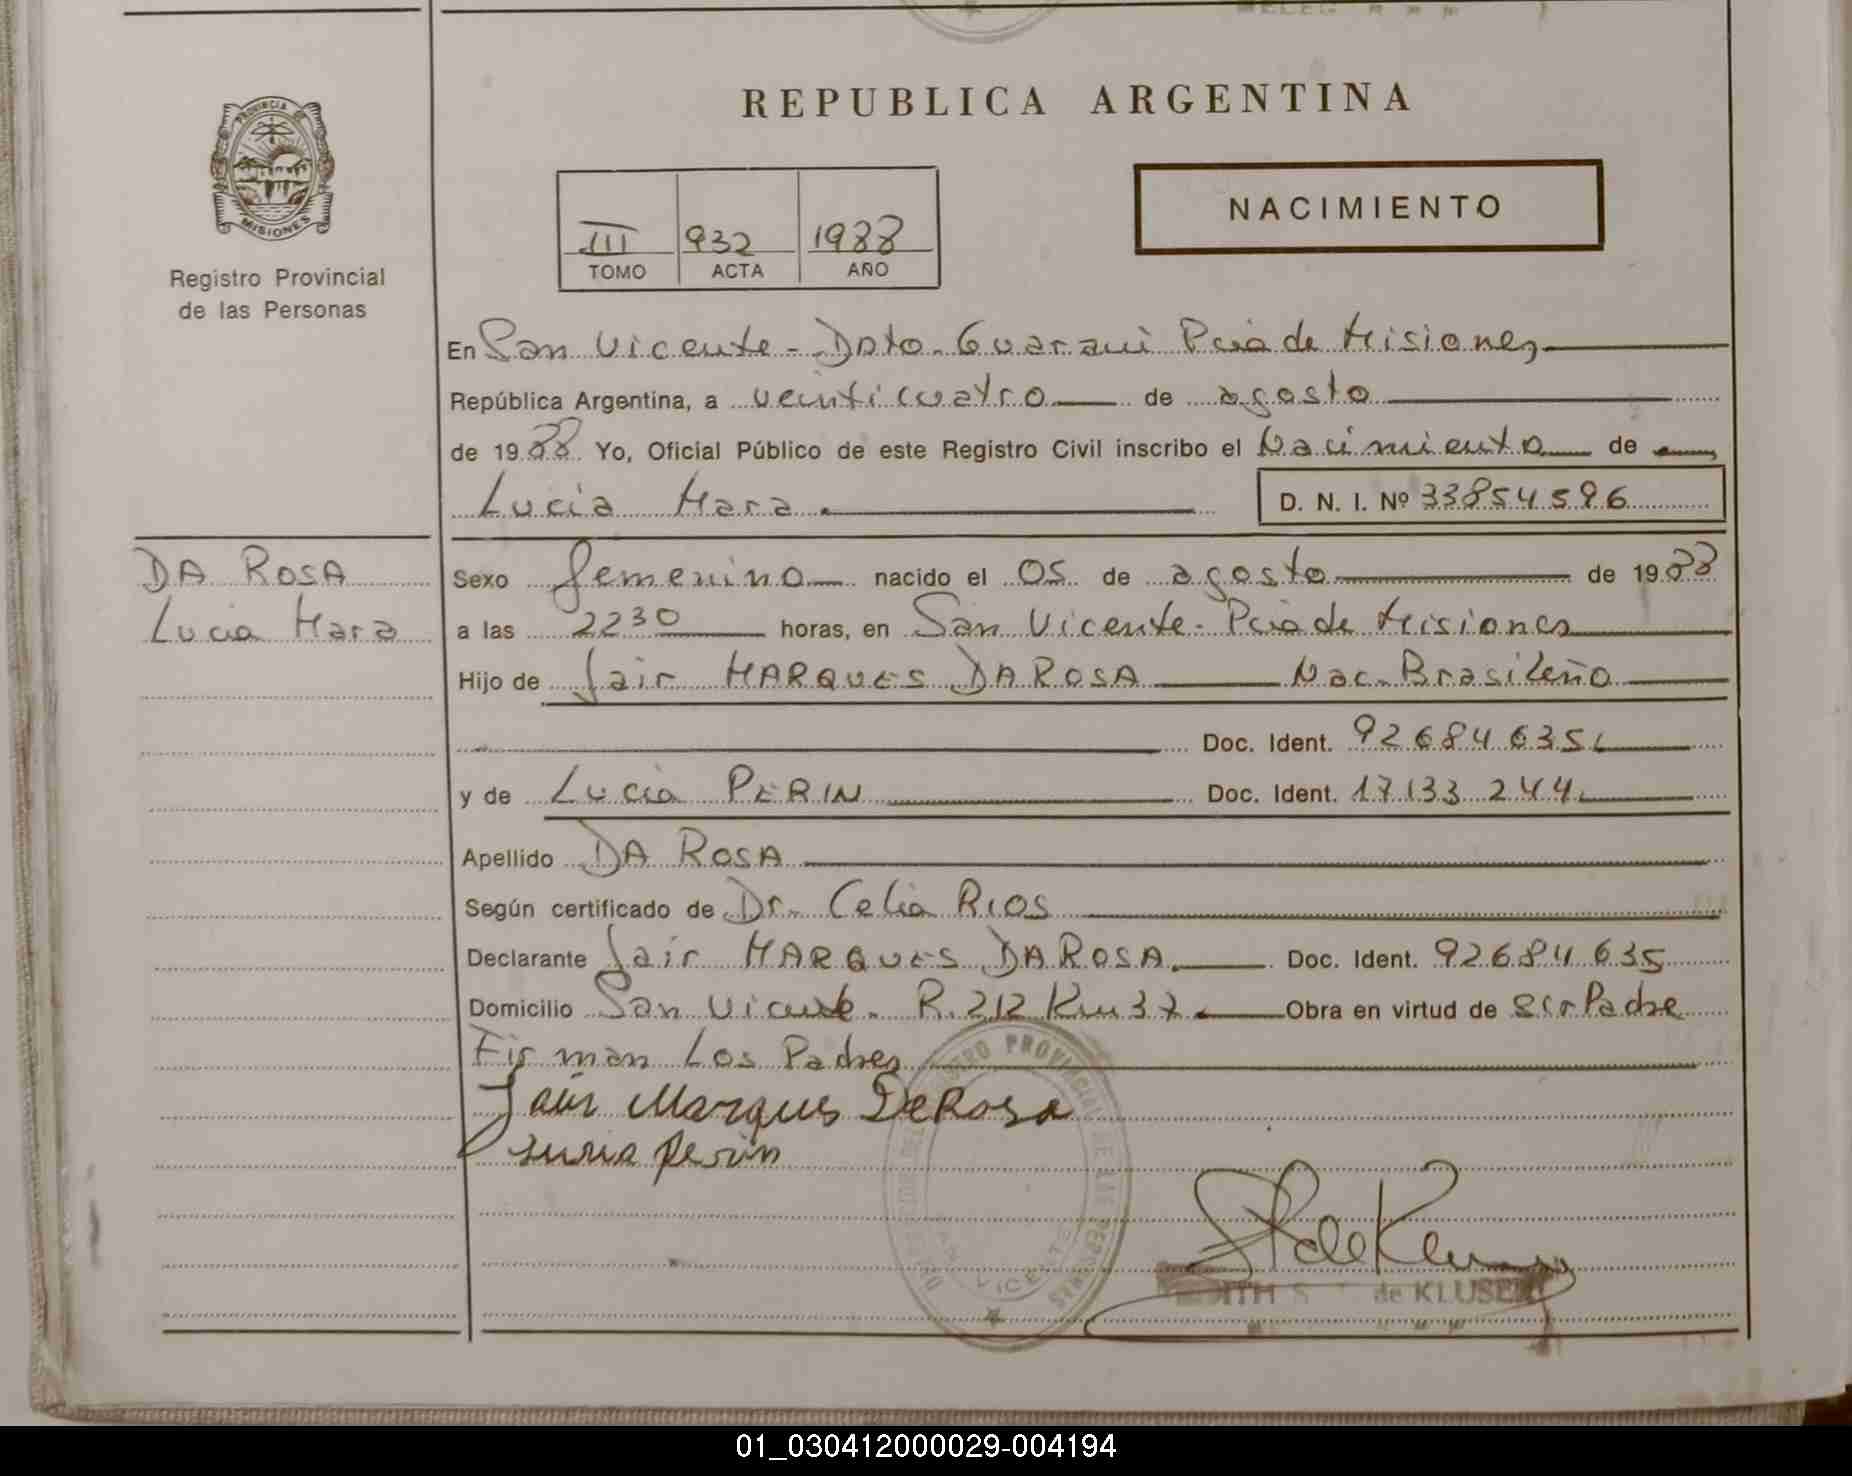 REPUBLICA ARGENTINA
PROVINCIA DE
MISIONES
Registro Provincial
de las Personas
III 932 1988
TOMO ACTA AÑO
NACIMIENTO
En San Vicente - Dpto. Guaraní Pcia de Misiones
República Argentina, a veinticuatro de agosto
de 1988 Yo, Oficial Público de este Registro Civil inscribo el Nacimiento de
Lucia Mara D. N. I. Nº 33854596
DA ROSA
Lucia Mara
Sexo femenino nacido el 05 de agosto de 1988
a las 2230 horas, en San Vicente - Pcia de Misiones
Hijo de Jair MARQUES DA ROSA Nac. Brasileño
Doc. Ident. 92684635
y de Lucia PERIN Doc. Ident. 17133244
Apellido DA ROSA
Según certificado de Dr. Celia RIOS
Declarante Jair MARQUES DA ROSA Doc. Ident. 92684635
Domicilio San Vicente. R. 212 Km 37 Obra en virtud de ser Padre
Firman Los Padres
Jair Marques DeRosa
Lucia Perin
de KLUSEN
01_030412000029-004194